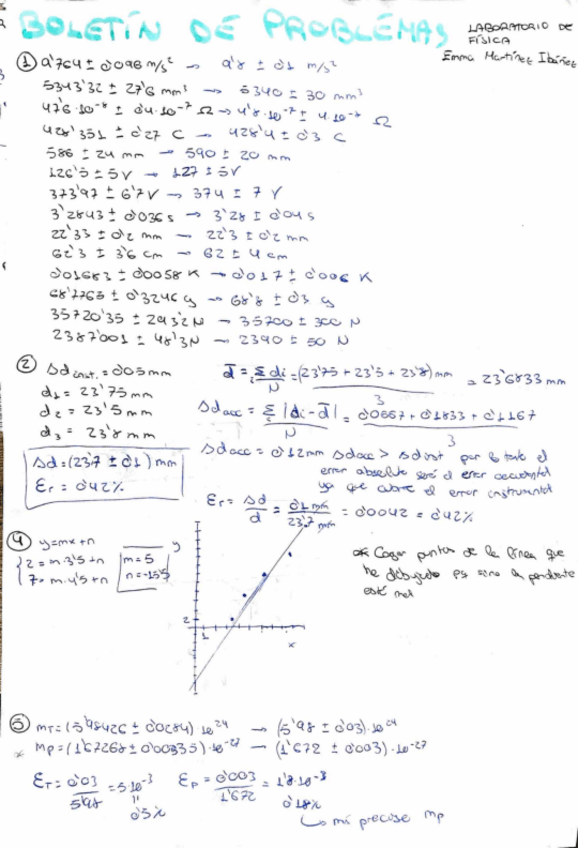 BOLETÍN DE PROBLEMAS
LABORATORIO DE
FÍSICA
Emma Martínez Ibáñez
① 9'764 ± 0'096 m/s² → 9'8 ± 0'1 m/s²
5343'32 ± 27'6 mm³ → 5340 ± 30 mm³
4'76·10⁻⁸ ± 0'4·10⁻⁷ Ω → 4'8·10⁻⁷ ± 4·10⁻⁸ Ω
428'351 ± 0'27 C → 428'4 ± 0'3 C
586 ± 24 mm → 590 ± 20 mm
126'5 ± 5 V → 127 ± 5 V
373'97 ± 6'7 V → 374 ± 7 V
3'2843 ± 0'036 s → 3'28 ± 0'04 s
22'33 ± 0'2 mm → 22'3 ± 0'2 mm
62'3 ± 3'6 cm → 62 ± 4 cm
0'01683 ± 0'0058 K → 0'017 ± 0'006 K
68'7765 ± 0'3246 g → 68'8 ± 0'3 g
35720'35 ± 293'2 N → 35700 ± 300 N
2387'001 ± 48'3 N → 2390 ± 50 N
② Δd inst. = 0'05 mm
d₁ = 23'75 mm
d₂ = 23'5 mm
d₃ = 23'8 mm
Δd = (23'7 ± 0'1) mm
Er = 0'42%
d̄ = Σ di/N = (23'75 + 23'5 + 23'8) mm / 3 = 23'6833 mm
Δd acc = Σ |di - d̄| / N = 0'0667 + 0'1833 + 0'1167 / 3
Δd acc = 0'12 mm Δd acc > Δd inst por lo tanto el
error absoluto será el error accidental
ya que cubre el error instrumental
Er = Δd/d = 0'1 mm / 23'7 mm = 0'0042 = 0'42%
④ y = mx + n
2 = m·3'5 + n
7 = m·4'5 + n
m = 5
n = -15'5
y
2
1
x
Coger puntos de la línea que
he dibujado pq sino la pendiente
está mal
⑤ mT = (5'98426 ± 0'0284)·10²⁴ → (5'98 ± 0'03)·10²⁴
* mp = (1'67268 ± 0'00335)·10⁻²⁷ → (1'672 ± 0'003)·10⁻²⁷
ET = 0'03 / 5'98 = 5·10⁻³
"
0'5%
Ep = 0'003 / 1'672 = 1'8·10⁻³
0'18%
↳ más precisa mp